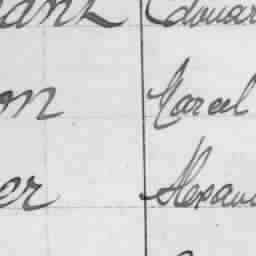 ant Edouar
on Marcel
er Alexan